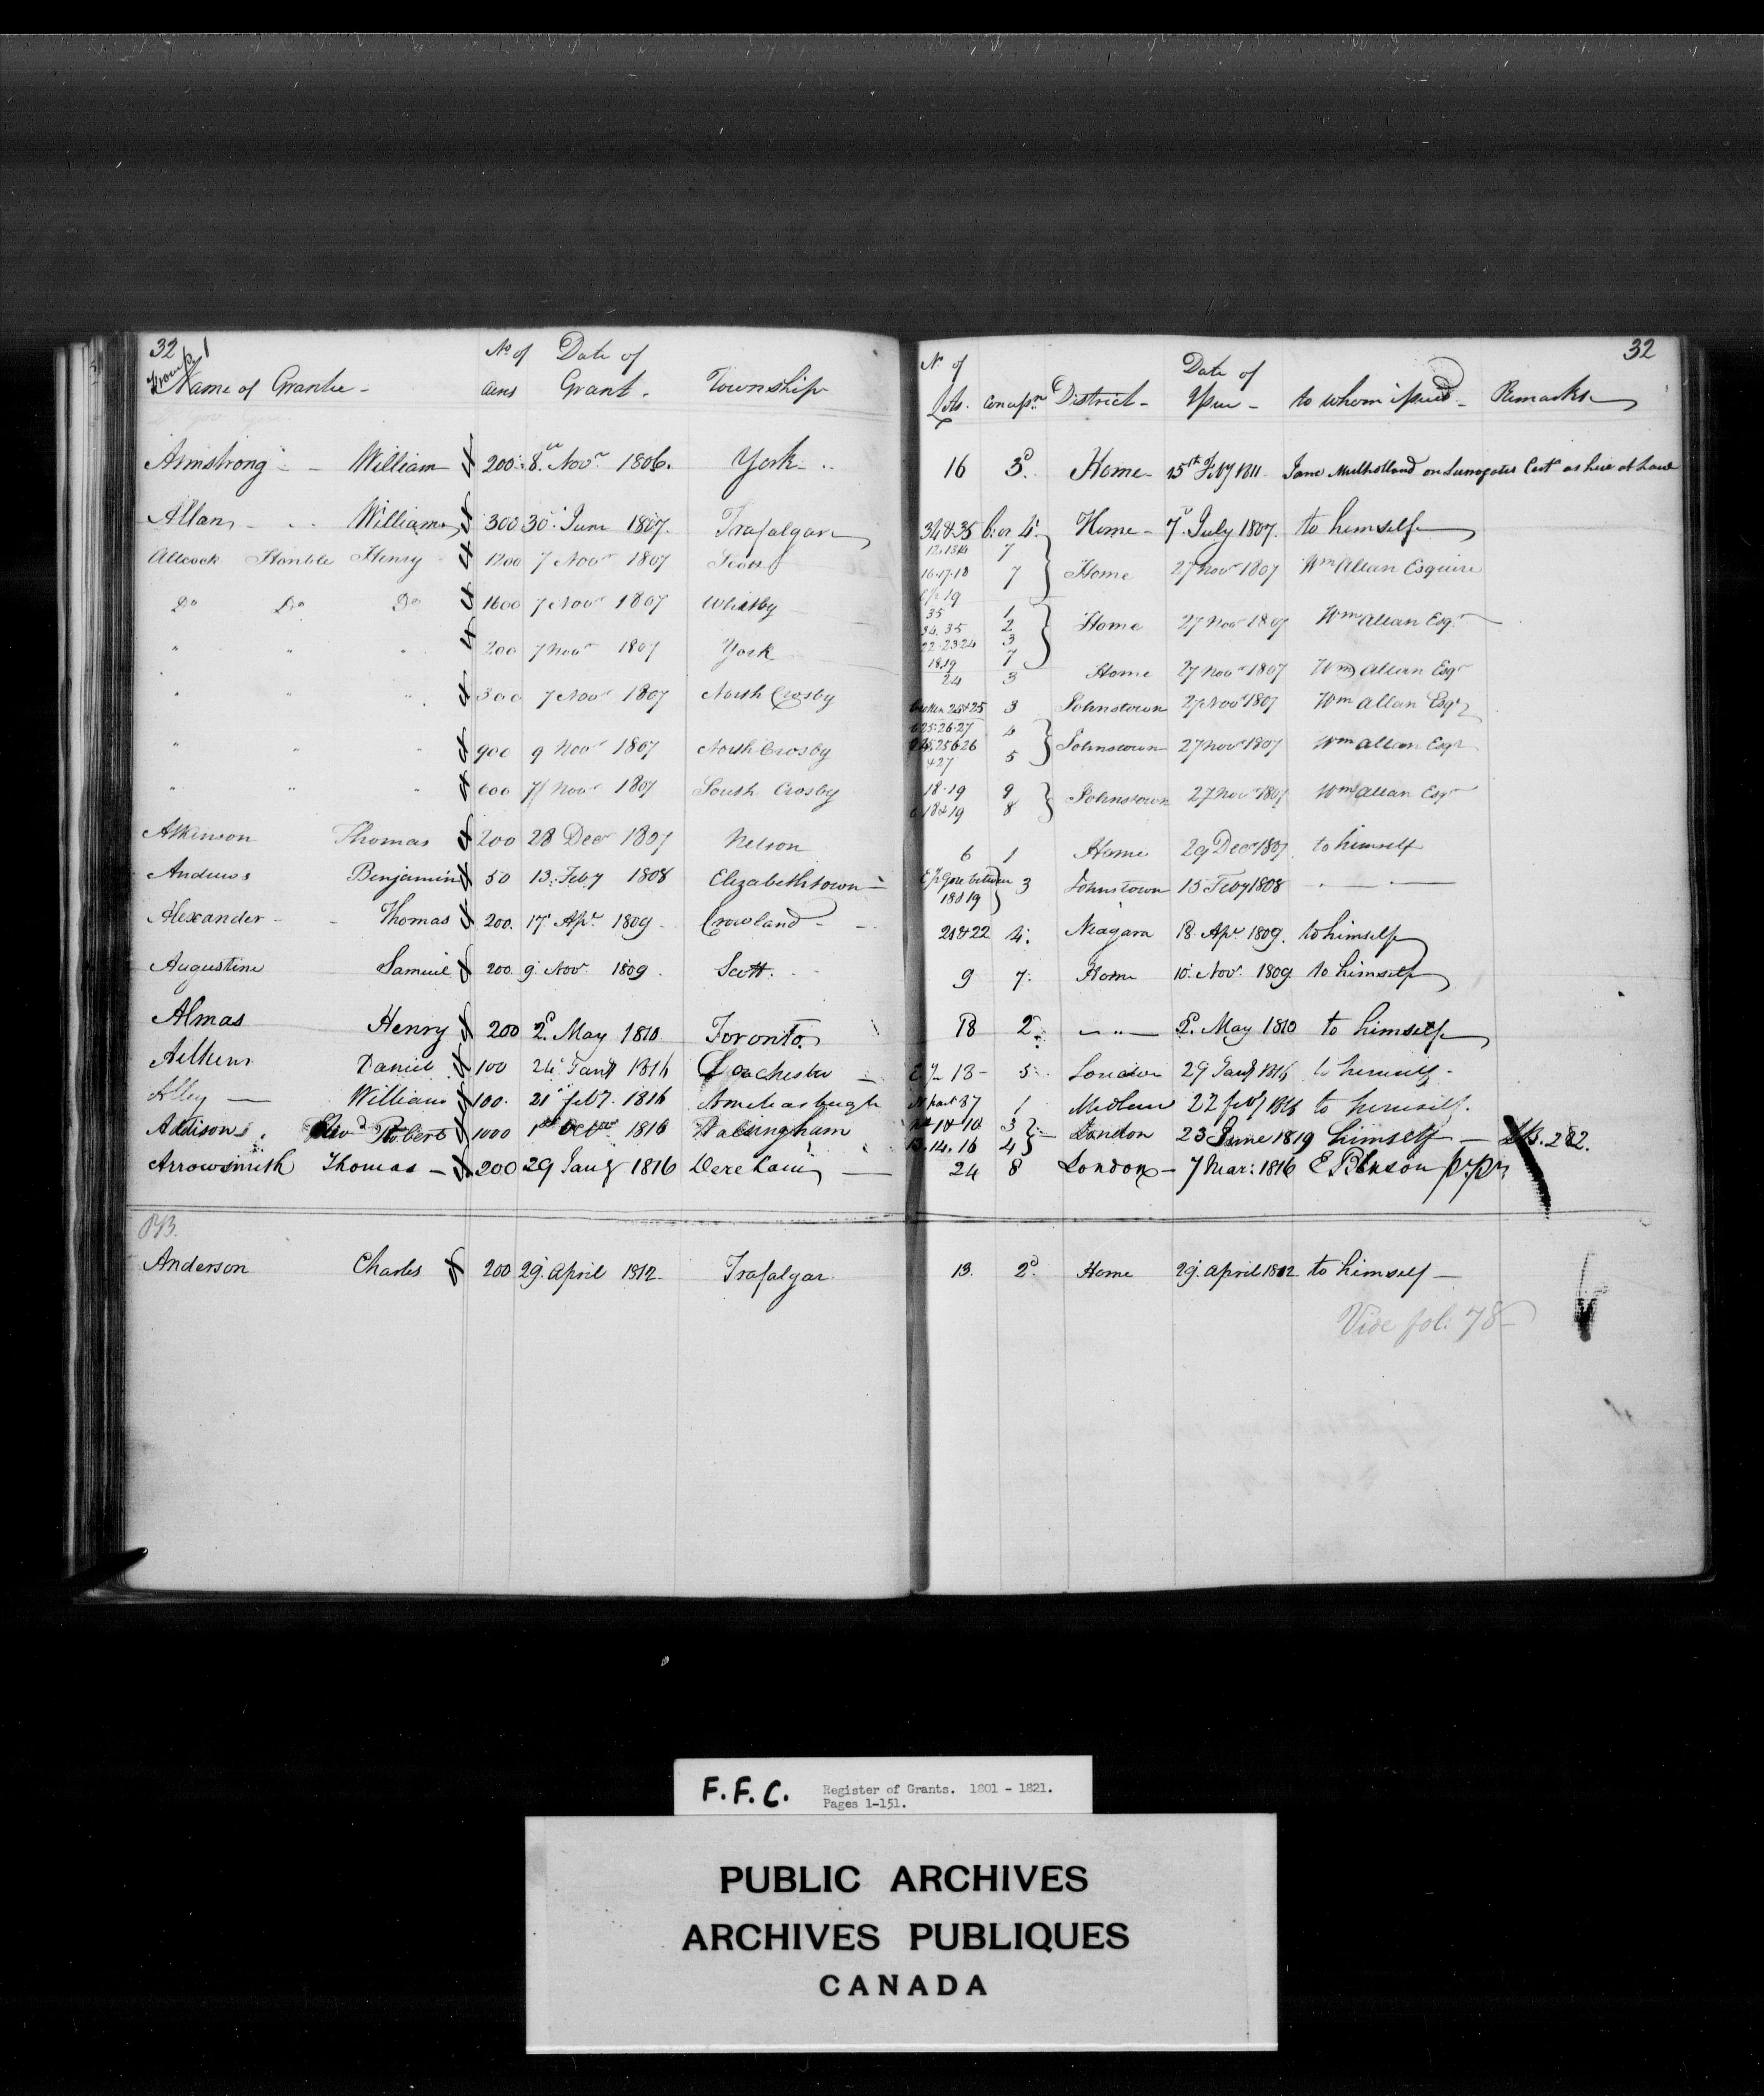 32 32
from p. 1
Name of Grantee - No of acres Date of Grant - Township No of Lots. Concessn District - Date of Issue - to whom issued - Remarks
Armstrong - William 200 8 Novr 1806. York 16 3d Home - 15th Feby 1811 Jane Mulholland on Surrogates Cert. as heir at Law
Allan - William 300 30 June 1807. Trafalgar 34 & 35 4 Home - 7 July 1807. to himself
Allcock Honble Henry 1200 7 Novr 1807 Scott 12.13.14 7 16.17.18 7 19 Home 27 Novr 1807 Wm Allan Esquire
Do Do Do 1600 7 Novr 1807 Whitby 35 1 34.35 2 22.23.24 3 18.19 7 Home 27 Novr 1807 Wm Allan Esqr
" " " 200 7 Novr 1807 York 24 3 Home 27 Novr 1807 Wm Allan Esqr
" " " 300 7 Novr 1807 North Crosby Broken 24 & 25 3 Johnstown 27 Novr 1807 Wm Allan Esqr
" " " 900 9 Novr 1807 North Crosby 25.26.27 25 & 26 & 27 5 Johnstown 27 Novr 1807 Wm Allan Esqr
" " " 600 7 Novr 1807 South Crosby 18.19 9 18 & 19 8 Johnstown 27 Novr 1807 Wm Allan Esqr
Atkinson Thomas 200 28 Decr 1807 Nelson 6 1 Home 29 Decr 1807 to himself
Andrews Benjamin 50 13 Feby 1808 Elizabethtown Gore between 18 & 19 3 Johnstown 15 Feby 1808
Alexander - Thomas 200. 17 Apr. 1809 - Crowland - 21 & 22 4. Niagara 18 Apr. 1809. to himself
Augustine Samuel 200. 9 Novr 1809. Scott. 9 7. Home 10 Novr. 1809 to himself
Almas Henry 200 2d May 1810 Toronto 18 2 - " - 2. May 1810 to himself
Aitkens Daniel 100 24 Jany 1816 Dorchester 13 - 5 London 29 Jany 1816 to himself -
Alley William 100. 21 Feby. 1816 Ameliasburgh part 87 1 Midland 22 Feby 1816 to himself.
Addison Revd Robert 1000 1st Octr 1816 Walsingham 3 13.14.16 4 London 23 June 1819 himself - 282.
Arrowsmith Thomas - 200 29 Jany 1816 Dereham 24 8 London - 7 Mar: 1816
Anderson Charles 200 29 April 1812 - Trafalgar 13. 2d Home 29 April 1812 to himself -
Vide fol: 78
F.F.C. Register of Grants. 1801 - 1821.
Pages 1-151.
PUBLIC ARCHIVES
ARCHIVES PUBLIQUES
CANADA